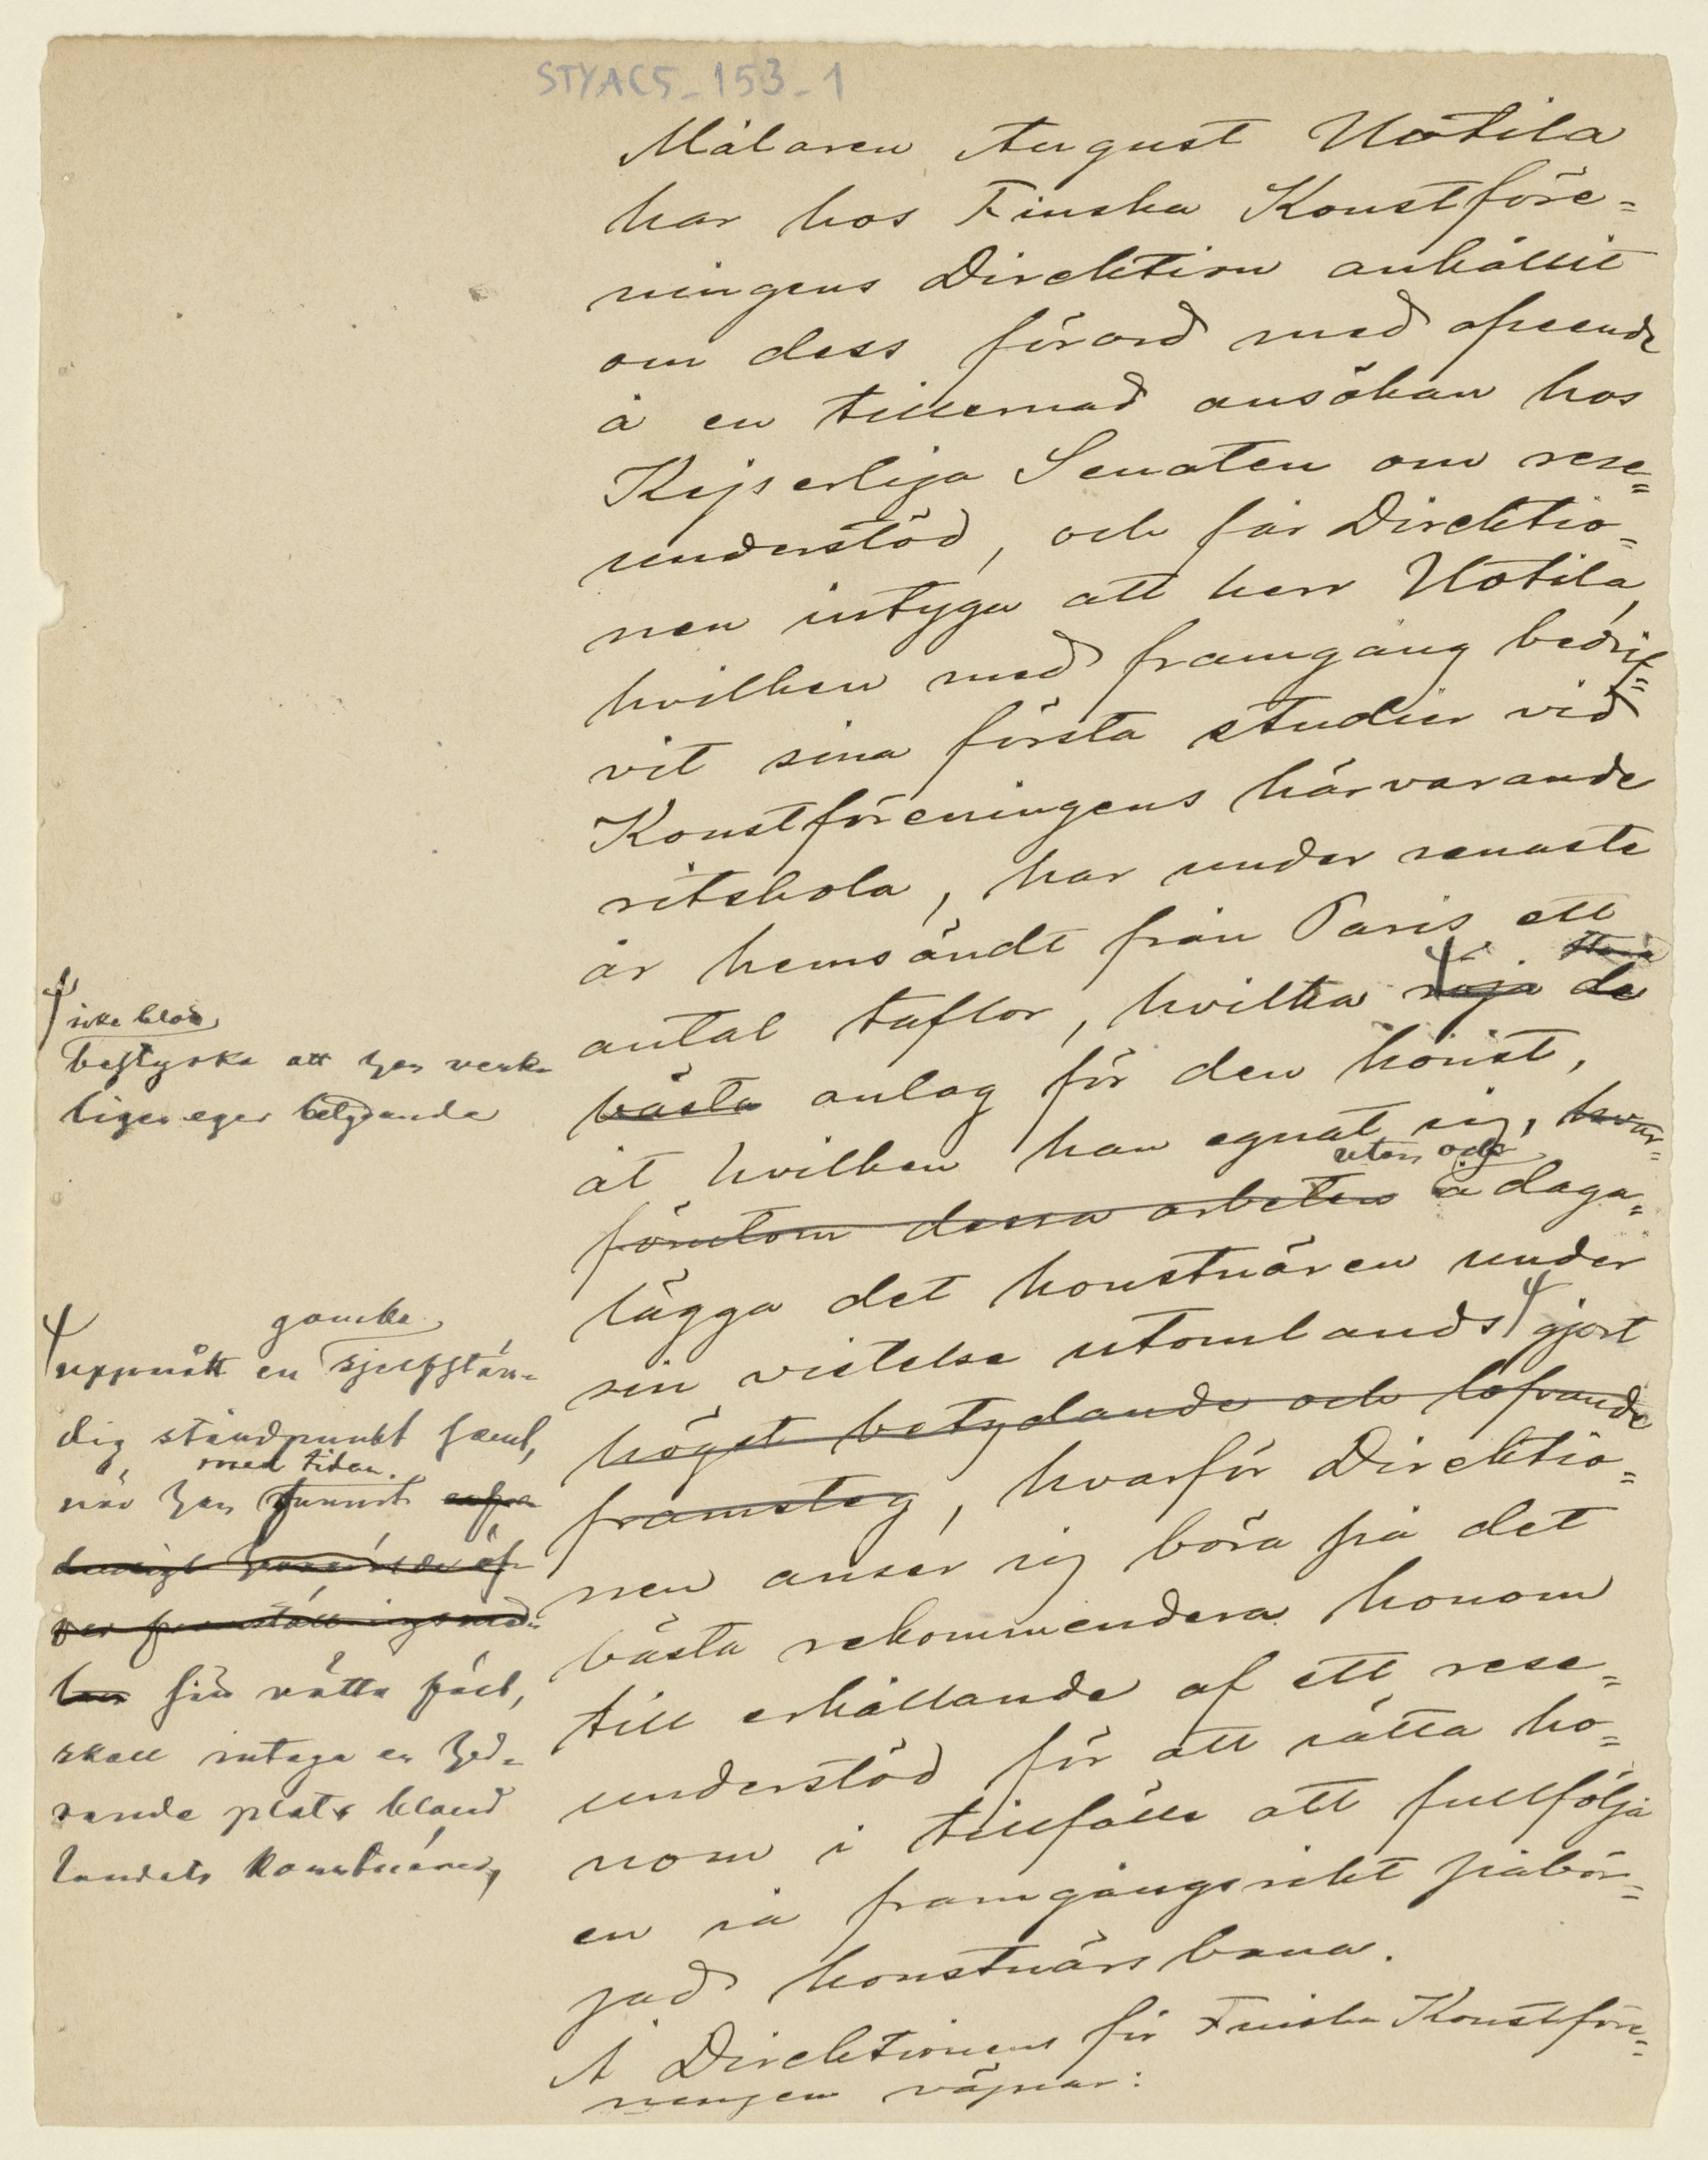 STYAC5_153_1
Målaren August Uotila
har hos Finska Konstföre=
ningens Direktion anhållit
om dess förord med afseende
å en tillernad ansökan hos
Kejserliga Senaten om rese=
understöd, och får Direktio=
nen intyga att herr Uotila,
hvilken med framgång bedrif=
vit sina första studier vid
Konstföreningens härvarande
ritskola, har under senaste
år hemsändt från Paris ett
antal taflor, hvilka röja de
bästa anlag för den konst,
åt hvilken han egnat sig, hvar=
utan ock
förutom dessa arbeten å daga=
lägga det konstnären under
sin vistelse utomlands gjort
högst betydande och lofvande
framsteg, hvarför Direktio=
nen anser sig böra på det
bästa rekommendera honom
till erhållande af ett rese=
understöd för att sätta ho=
nom i tillfälle att fullfölja
en så framgångsrikt påbör=
jad konstnärsbana.
Å Direktionens för Finska Konstföre=
ningen vägnar:
icke blott
bestyrka att han verk=
ligen eger betydande
ganska
uppnått en sjelfstän=
dig ståndpunkt samt,
med tiden
när han funnit
sin rätta fält,
skall intaga en hed=
rande plats bland
landets konstnärer,